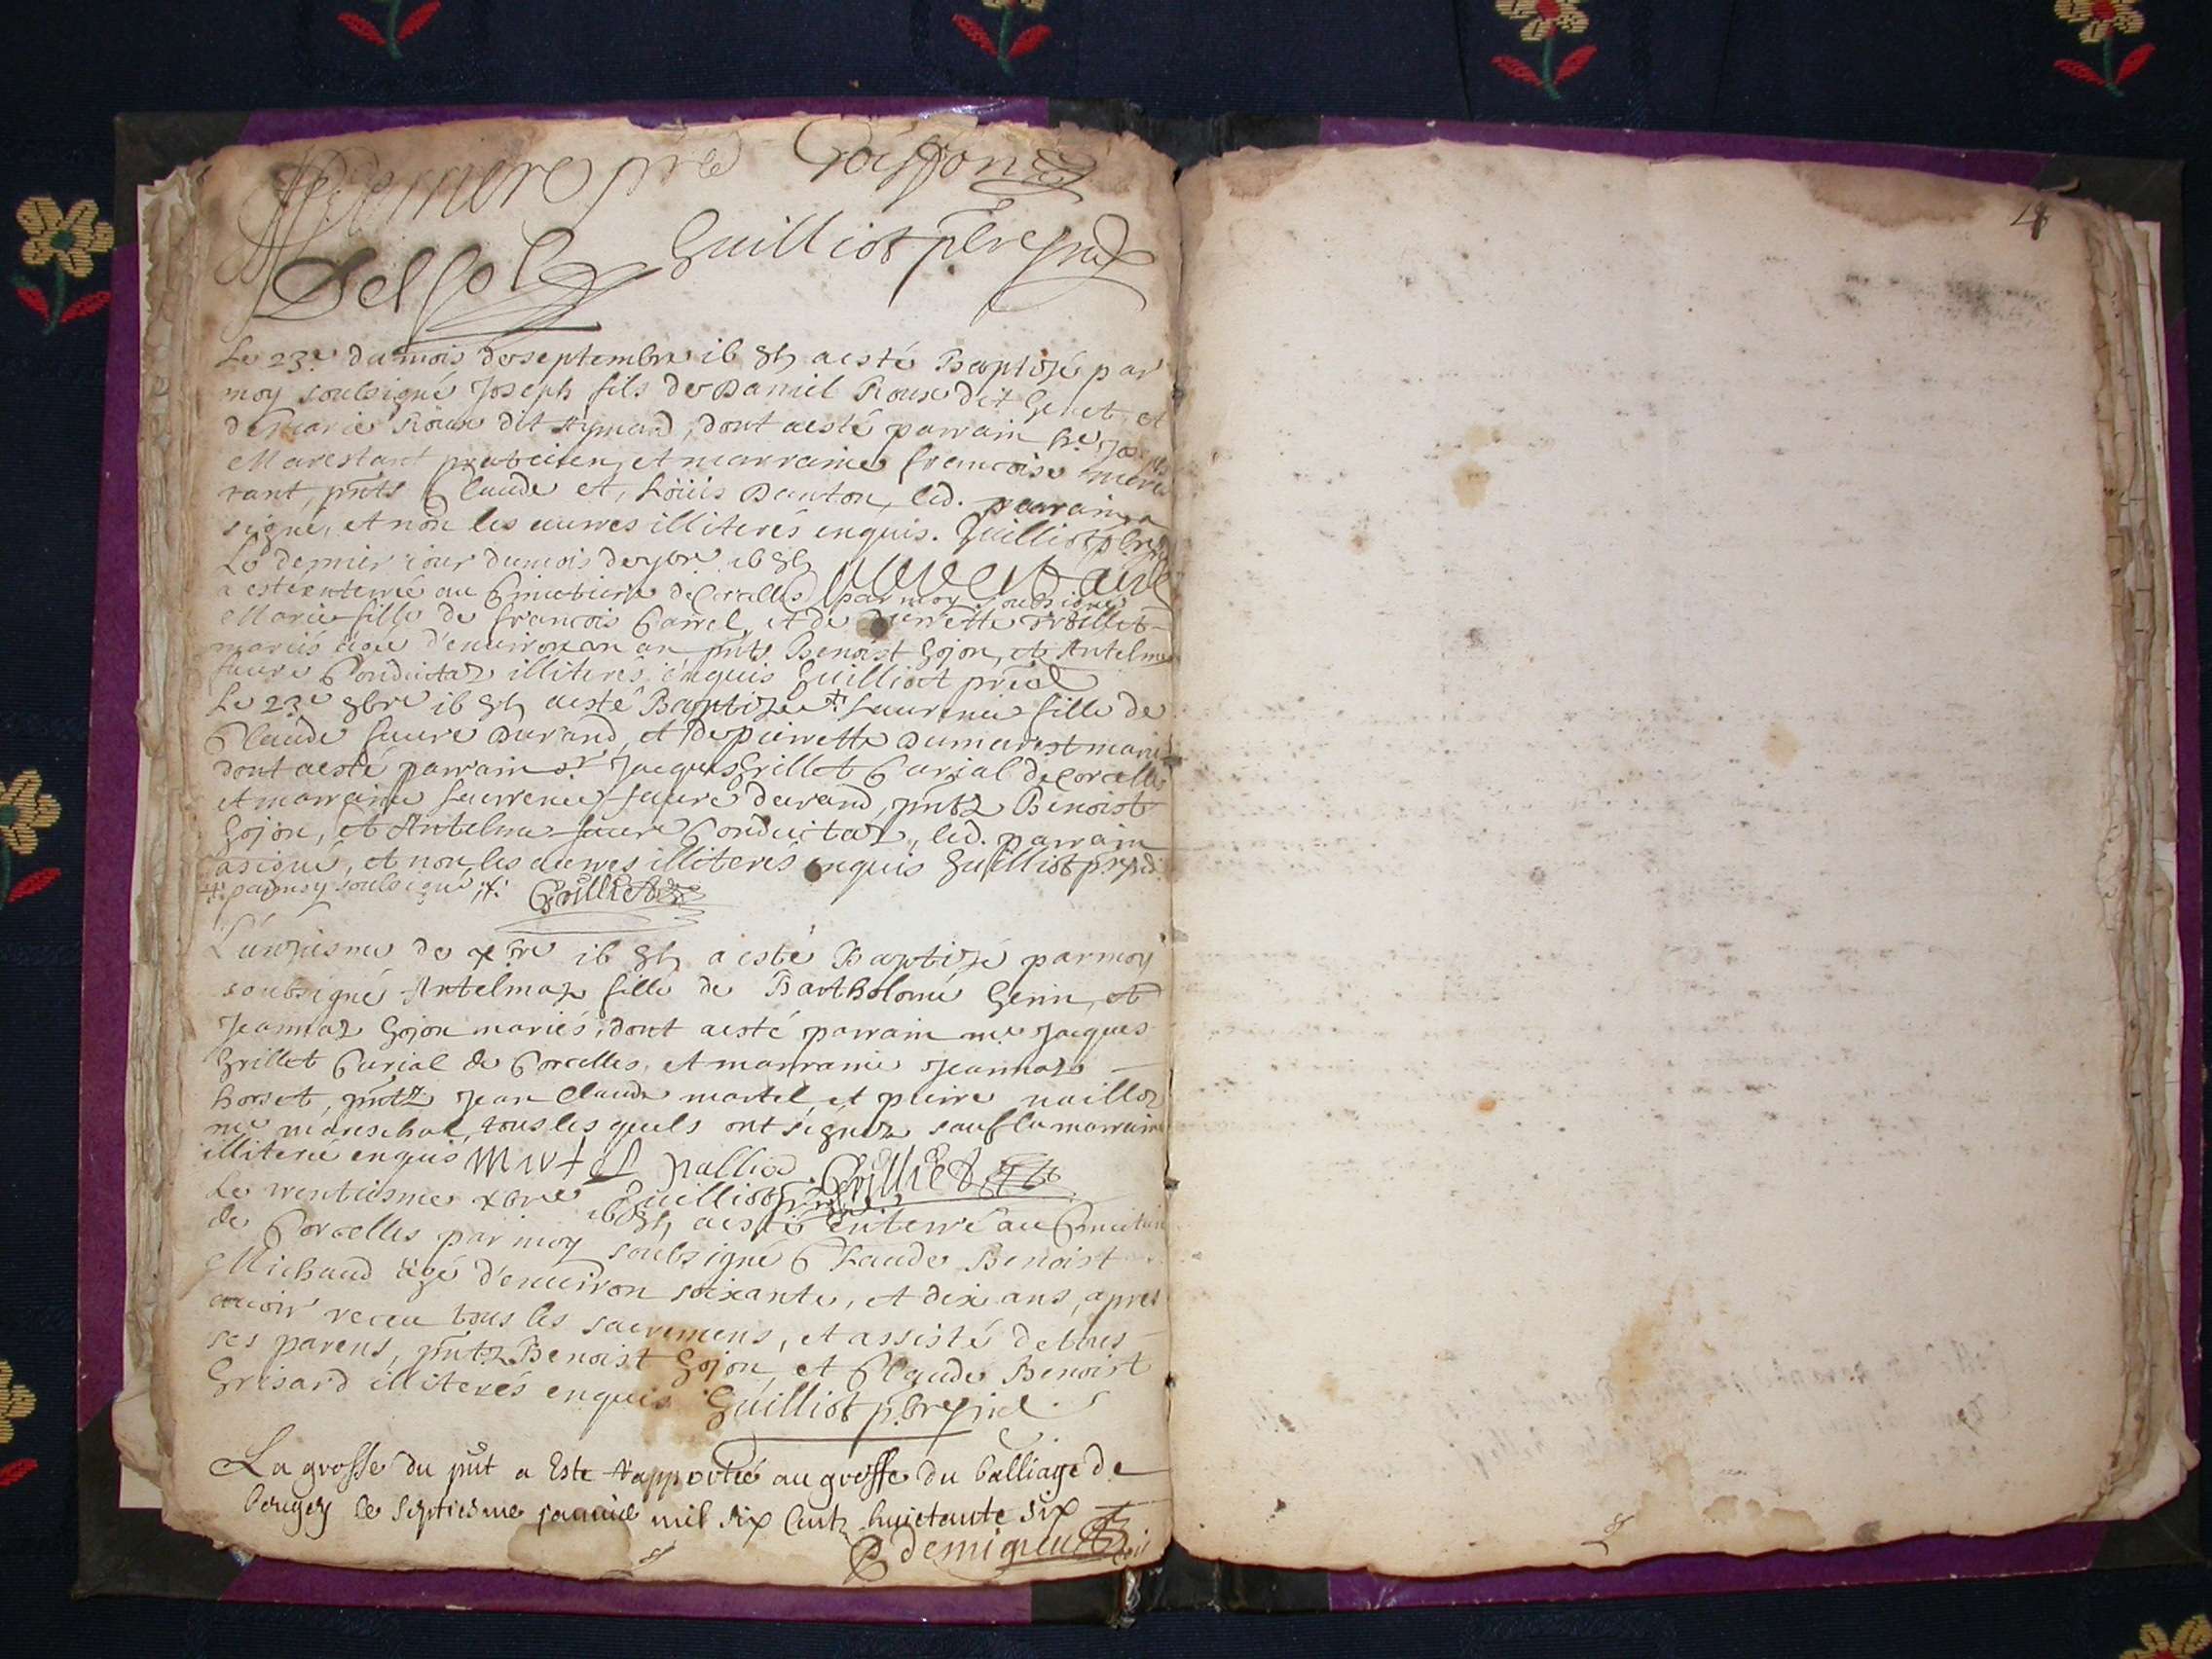 Guilliot pbre
Delsol
Le 23.e du mois de septembre 1685 a esté Baptizé par
moy soubsigné Joseph fils de Daniel Roux dit Genet, et
de Marie Roux dit, dont a esté parrain
Marestant praticien, et marraine francoise
rant, pnts Claude et, Loüis Danton, led. parrain a
signé, et non les autres illiterés enquis. Guilliot pbre
Le dernier iour du mois de 7bre 1685
a esté enterré au Cimetiere de Corcelles par moy soubsigné
Marie fille de francois Carrel, et de
mariés agée d'environ un an pnts Benoist Gojon, et Antelme
faure Conduitaz illiterés enquis Guilliot
Le 23.e 8bre 1685 a esté Baptizée + Laurence fille de
Claude faure Durand, et de pierrette Dumarest mariés
dont a esté parrain Sr Jacques Grillet Curial de Corcelles
et marraine Laurence faure durand, pntz Benoist
Gojon, et Antelme faure Conduitaz, led. parrain
a signé, et non les autres illiterés enquis Guilliot
+ par moy soubsigné + Grilliet
L'unziesme de xbre 1685 a esté Baptizé par moy
soubsigné Antelmaz fille de Bartholomé Genin, et
Jeannaz Gojon mariés, dont a esté parrain me Jacques
Grillet Curial de Corcelles, et marraine Jeannaz
horset, pntz Jean Claude martel, et pierre
me mareschal, tous les quels ont signez sauf la marraine
illiteree enquis Martel Grilliet
Guilliot
Le trentiesme xbre 1685 a esté enterré au Cimetiere
de Corcelles par moy soubsigné Claude Benoist
Michaud agé d'environ soixante, et dix ans, apres
avoir receu tous les sacremens, et assisté de tous
ses parens, pntz Benoist Gojon, et Claude Benoist
Grisard illiterés enquis Guilliot pbre
La grosse du pnt a Este rapportée au greffe du balliage de
beugey le septiesme janvie mil six Centz huictante six
demigieu